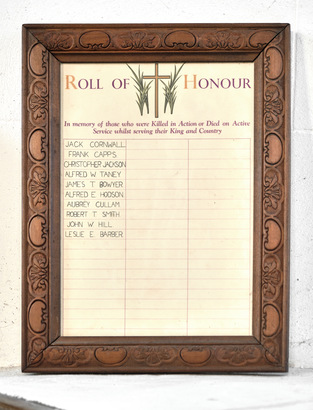 ROLL OF HONOUR
In memory of those who were Killed in Action or Died on Active
Service whilst serving their King and Country
JACK CORNWALL
FRANK CAPPS
CHRISTOPHER JACKSON
ALFRED W TANEY
JAMES T BOWYER
ALFRED E HODSON
AUBREY CULLAM
ROBERT T SMITH
JOHN W HILL
LESLIE E BARBER